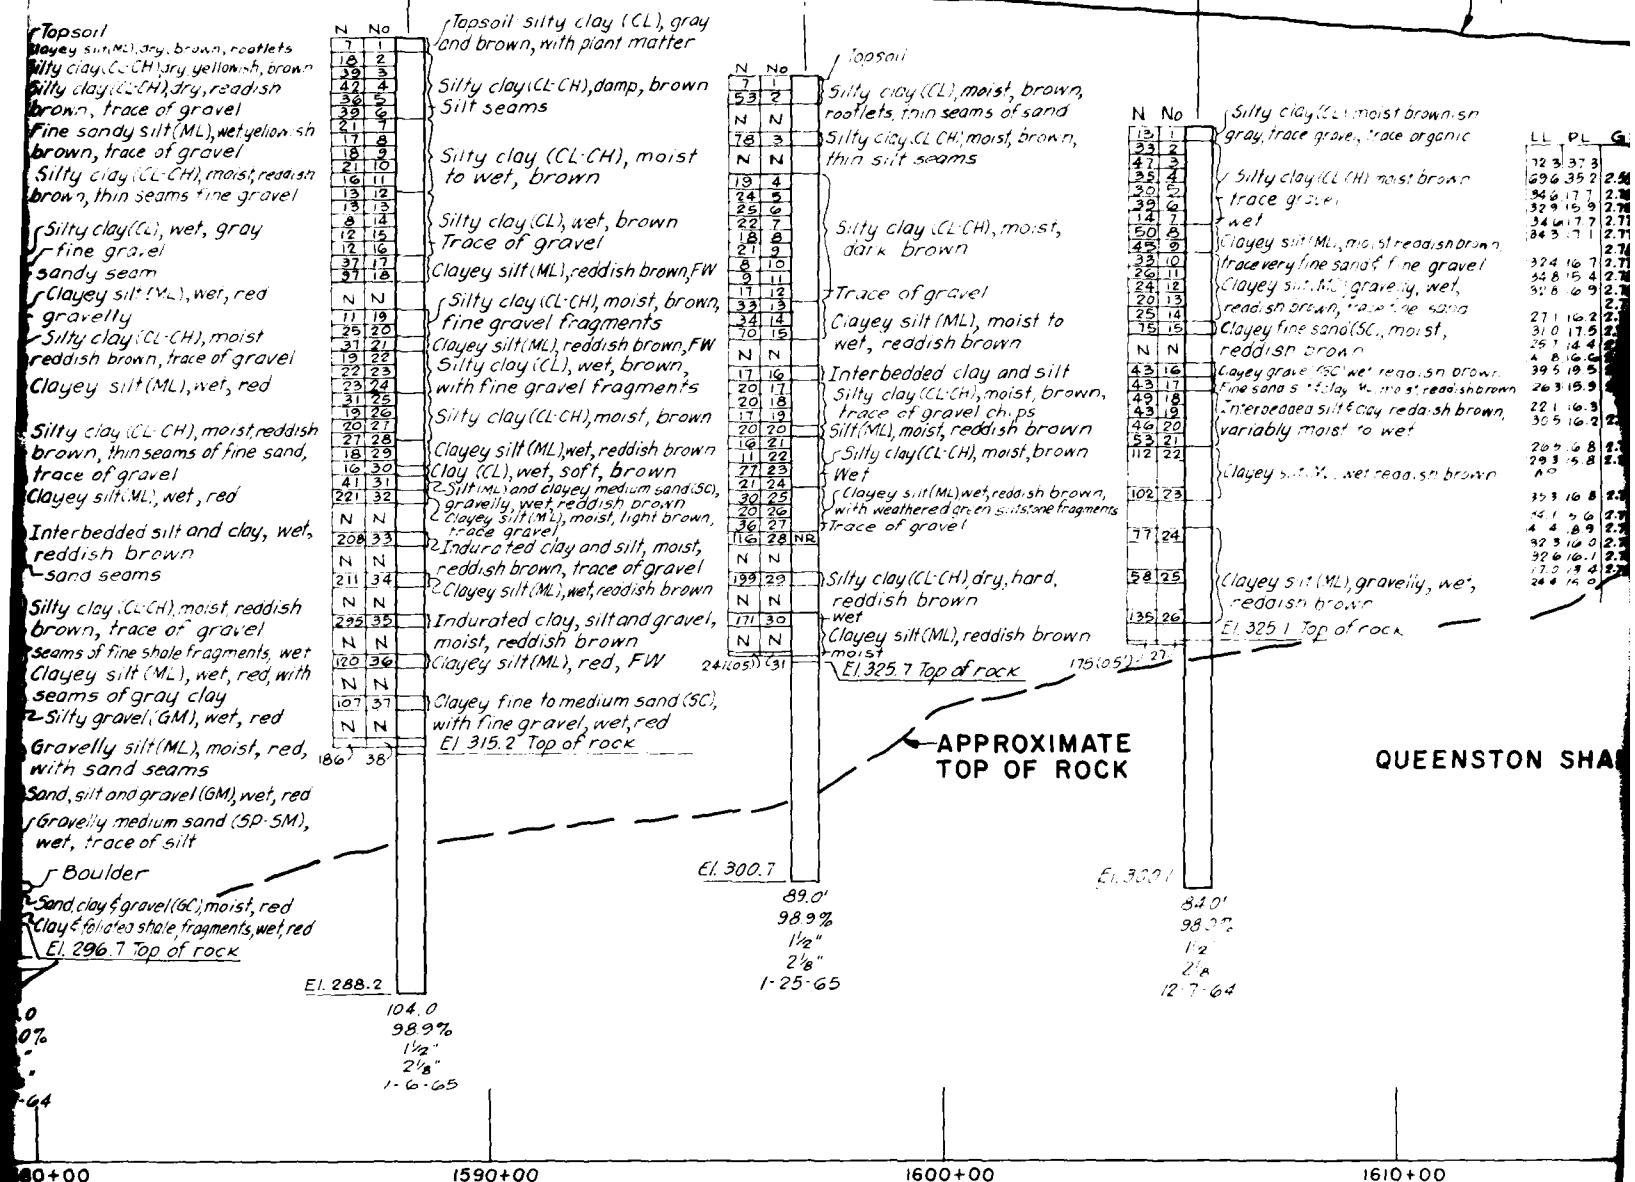 Topsoil
Clayey silt(ML), dry, brown, rootlets
Silty clay(CL-CH), dry, yellowish, brown
Silty clay(CL-CH), dry, readish
brown, trace of gravel
Fine sandy silt(ML), wet, yellowish
brown, trace of gravel
Silty clay(CL-CH), moist, reddish
brown, thin seams fine gravel
Silty clay(CL), wet, gray
fine gravel
sandy seam
Clayey silt (ML), wet, red
gravelly
Silty clay(CL-CH), moist
reddish brown, trace of gravel
Clayey silt(ML), wet, red
Silty clay (CL-CH), moist, reddish
brown, thin seams of fine sand,
trace of gravel
Clayey silt(ML), wet, red
Interbedded silt and clay, wet,
reddish brown
sand seams
Silty clay (CL-CH), moist, reddish
brown, trace of gravel
seams of fine shale fragments, wet
Clayey silt (ML), wet, red, with
seams of gray clay
Silty gravel (GM), wet, red
Gravelly silt(ML), moist, red,
with sand seams
Sand, silt and gravel (GM), wet, red
Gravelly medium sand (SP-SM),
wet, trace of silt
Boulder
Sand, clay & gravel(GC), moist, red
Clay & foliated shale fragments, wet, red
El. 296.7 Top of rock
.0
0%
-64
N No
7 1
18 2
39 3
42 4
36 5
39 6
21 7
17 8
18 9
21 10
16 11
13 12
13 13
8 14
12 15
12 16
37 17
37 18
N N
11 19
25 20
37 21
19 22
22 23
23 24
31 25
19 26
20 27
27 28
18 29
16 30
41 31
221 32
N N
208 33
N N
211 34
N N
295 35
N N
120 36
N N
107 37
N N
186 38
Topsoil silty clay (CL), gray
and brown, with plant matter
Silty clay (CL-CH), damp, brown
Silt seams
Silty clay (CL-CH), moist
to wet, brown
Silty clay (CL), wet, brown
Trace of gravel
Clayey silt (ML), reddish brown, FW
Silty clay (CL-CH), moist, brown,
fine gravel fragments
Clayey silt(ML), reddish brown, FW
Silty clay (CL), wet, brown,
with fine gravel fragments
Silty clay (CL-CH), moist, brown
Clayey silt(ML) wet, reddish brown
Clay (CL), wet, soft, brown
Silt(ML) and clayey medium sand(SC),
gravelly, wet, reddish brown
Clayey silt(ML), moist, light brown,
trace gravel
Indurated clay and silt, moist,
reddish brown, trace of gravel
Clayey silt(ML), wet, reddish brown
Indurated clay, silt and gravel,
moist, reddish brown
Clayey silt(ML), red, FW
Clayey fine to medium sand (SC),
with fine gravel, wet, red
El. 315.2 Top of rock
El. 288.2
104.0
98.9%
1½"
2⅛"
1-6-65
N No
7 1
53 2
N N
78 3
N N
19 4
24 5
25 6
22 7
18 8
21 9
8 10
9 11
17 12
33 13
34 14
70 15
N N
17 16
20 17
20 18
17 19
20 20
16 21
11 22
27 23
21 24
30 25
20 26
36 27
116 28 NR
N N
199 29
N N
171 30
N N
241(05') 31
Topsoil
Silty clay (CL), moist, brown,
rootlets, thin seams of sand
Silty clay, CL-CH, moist, brown,
thin silt seams
Silty clay (CL-CH), moist,
dark brown
Trace of gravel
Clayey silt (ML), moist to
wet, reddish brown
Interbedded clay and silt
Silty clay (CL-CH), moist, brown,
trace of gravel chips
Silt(ML), moist, reddish brown
Silty clay(CL-CH), moist, brown
Wet
Clayey silt(ML) wet, reddish brown,
with weathered green siltstone fragments
Trace of gravel
Silty clay (CL-CH), dry, hard,
reddish brown
wet
Clayey silt (ML), reddish brown
moist
El. 325.7 Top of rock
El. 300.7
89.0'
98.9%
1½"
2⅛"
1-25-65
N No
13 1
33 2
47 3
35 4
30 5
39 6
14 7
50 8
45 9
33 10
26 11
24 12
20 13
25 14
75 15
N N
43 16
43 17
49 18
43 19
46 20
53 21
112 22
102 23
77 24
58 25
135 26
175(0.5') 27
Silty clay(CL) moist brown
gray, trace gravel, trace organic
Silty clay (CL-CH) moist brown
trace gravel
wet
Clayey silt (ML, moist readish brown,
trace very fine sand & fine gravel
Clayey silt, ML, gravelly, wet,
readish brown, trace fine sand
Clayey fine sand (SC, moist,
reddish brown
Clayey gravel (GC wet readish brown
Fine sand silt clay ML moist readish brown
Interbedded silt & clay redaish brown,
variably moist to wet
Clayey silt, ML, wet readish brown
Clayey silt (ML), gravelly, wet,
reddish brown
El. 325.1 Top of rock
El. 300.1
84.0'
1½
2⅛
12-7-64
LL PL G
72 3 37 3
69 6 35 2
34 6 17 7
32 9 15 9
34 6 17 7
32 4 16 7
34 8 15 4
27 1 16.2
31 0 17.5
39 5 19 5
26 3 15.9
22 1 16.3
30 5 16.2
35 3 16 8
32 3 16 0
32 6 16.1
APPROXIMATE
TOP OF ROCK
QUEENSTON SHA
80+00
1590+00
1600+00
1610+00